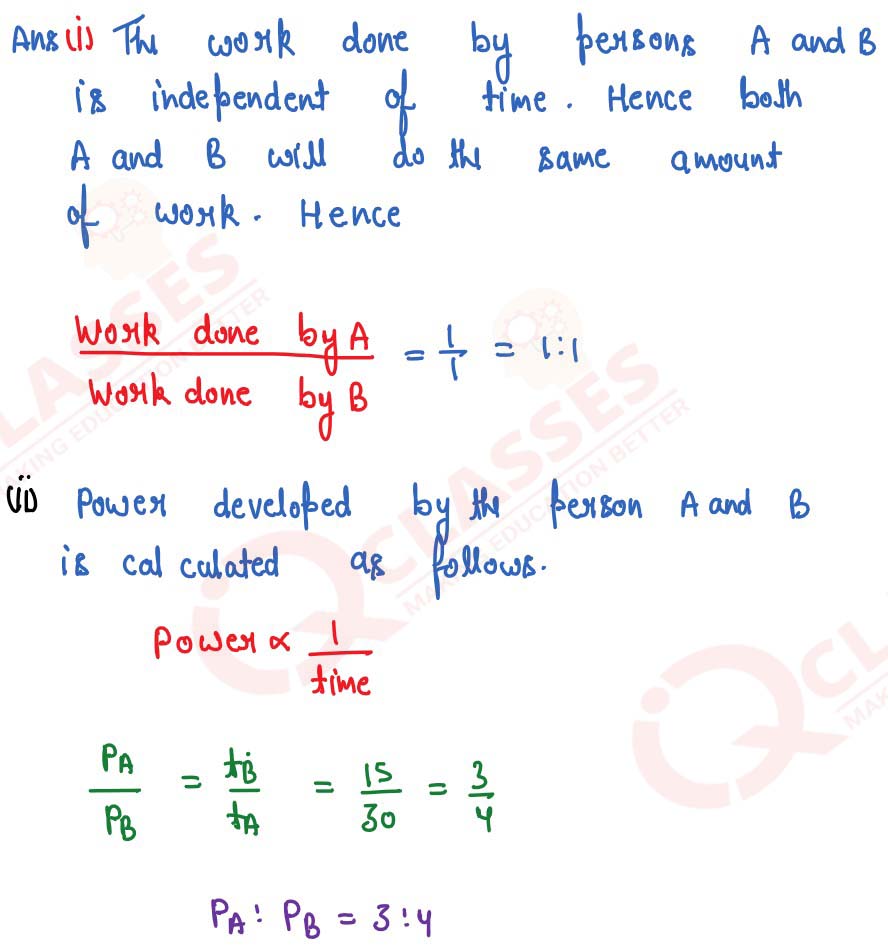 Ans (i) The work done by persons A and B
is independent of time. Hence both
A and B will do the same amount
of work. Hence
Work done by A / Work done by B = 1/1 = 1:1
(ii) Power developed by the person A and B
is cal culated as follows.
Power ∝ 1/time
PA/PB = tB/tA = 15/30 = 3/4
PA : PB = 3:4
CLASSES
MAKING EDUCATION BETTER
CLASSES
MAKING EDUCATION BETTER